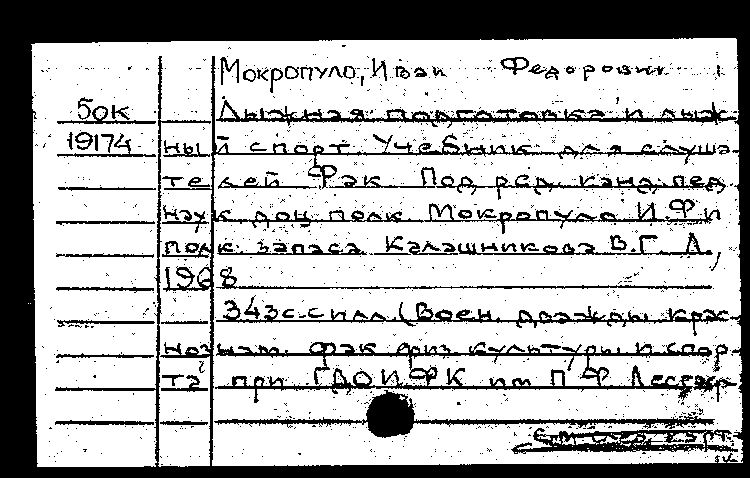 Мокропуло, Иван Федорович
50к Лыжная подготовка и лыж-
19174 ный спорт. Учебник для слуша-
телей Фак. Под ред. канд. пед.
наук доц. полк. Мокропуло И.Ф и
полк. запаса Калашникова В.Г. Л.,
1968
343с. с илл. (Воен. дважды крас-
нознам. фак физ. культуры и спор-
та при ГДОИФК им П Ф Лесгаф-
См. след. карт.